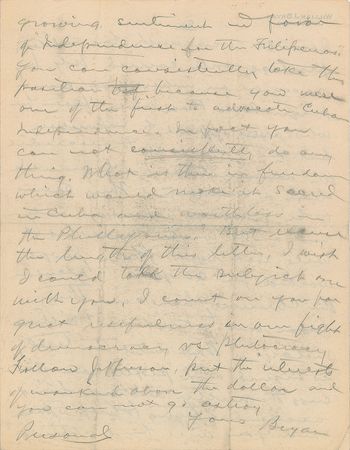 growing sentiment in favor
of Independence for the Filipinos.
You can consistently take this
position because you were
one of the first to advocate Cuban
Independence. In fact you
can not consistently do any
thing. What is there in freedom
which would make it Sacred
in Cuba and worthless in
the Phillipines? But excuse
the length of this letter, I wish
I could talk the subject over
with you. I count on you for
great usefulness in our fight
of democracy vs plutocracy.
Follow Jefferson, put the interests
of mankind above the dollar and
you can not go astray
Yours Bryan
Personal